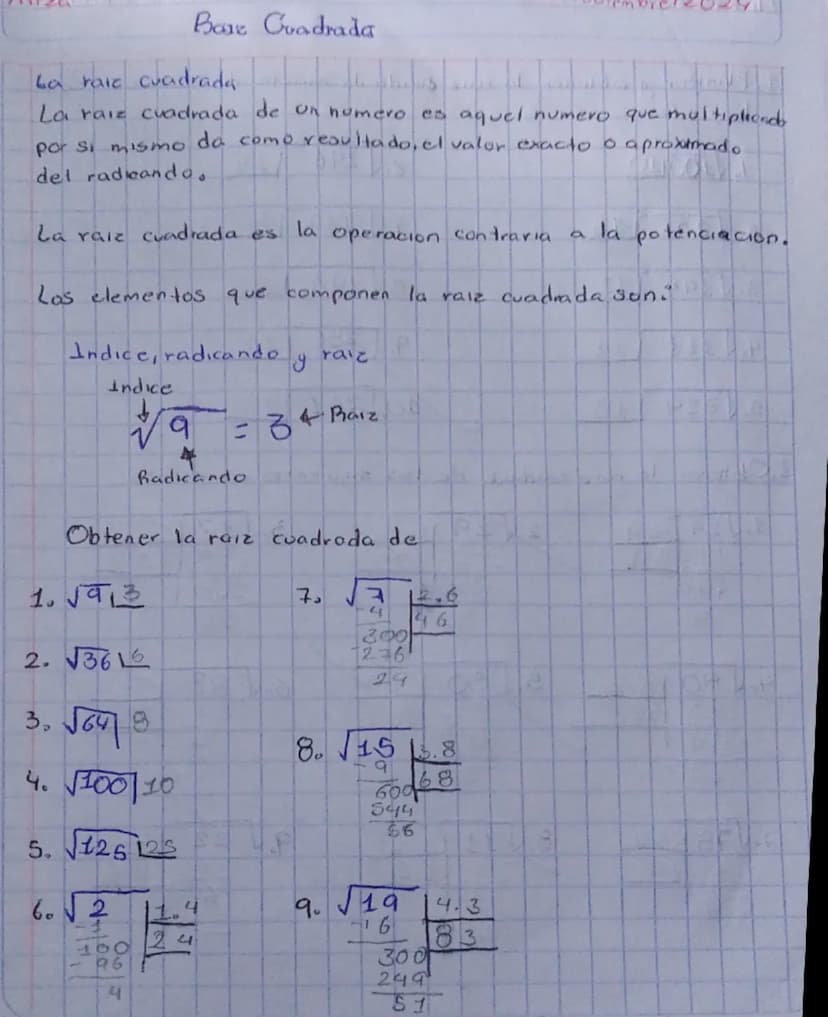 Raiz Cuadrada
La raiz cuadrada
La raiz cuadrada de un numero es aquel numero que multiplicado
por si mismo da como resultado, el valor exacto o aproximado
del radicando.
La raiz cuadrada es la operacion contraria a la potenciacion.
Los elementos que componen la raiz cuadrada son:
Indice, radicando y raiz
Indice
√9 = 3 ← Raiz
Radicando
Obtener la raiz cuadrada de
1. √9 3
2. √36 6
3. √64 8
4. √100 10
5. √125 25
6. √2 1.4
-1 24
100
- 96
4
7. √7 2.6
4 46
300
-276
24
8. √15 3.8
-9 68
600
544
56
9. √19 4.3
-16 83
300
249
51